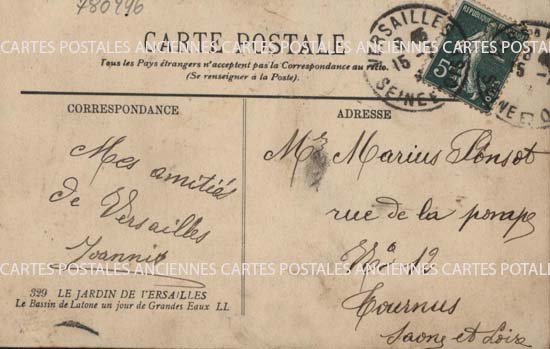 780496
CARTE POSTALE
Tous les Pays étrangers n'acceptent pas la Correspondance au recto.
(Se renseigner à la Poste).
CARTES POSTALES ANCIENNES CARTES POSTALES ANCIENNES CARTES POTALES ANCIENNES
VERSAILLES
15
SEINE ET O
REPUBLIQUE
5
CORRESPONDANCE
Mes amitiés
de Versailles
Joannis
ADRESSE
Mr Marius Ponsot
rue de la pompe
No 12
Tournus
Saone et Loire
CARTES POSTALES ANCIENNES CARTES POSTALES ANCIENNES CARTES POTALES ANCIENNES
329 LE JARDIN DE VERSAILLES
Le Bassin de Latone un jour de Grandes Eaux LL